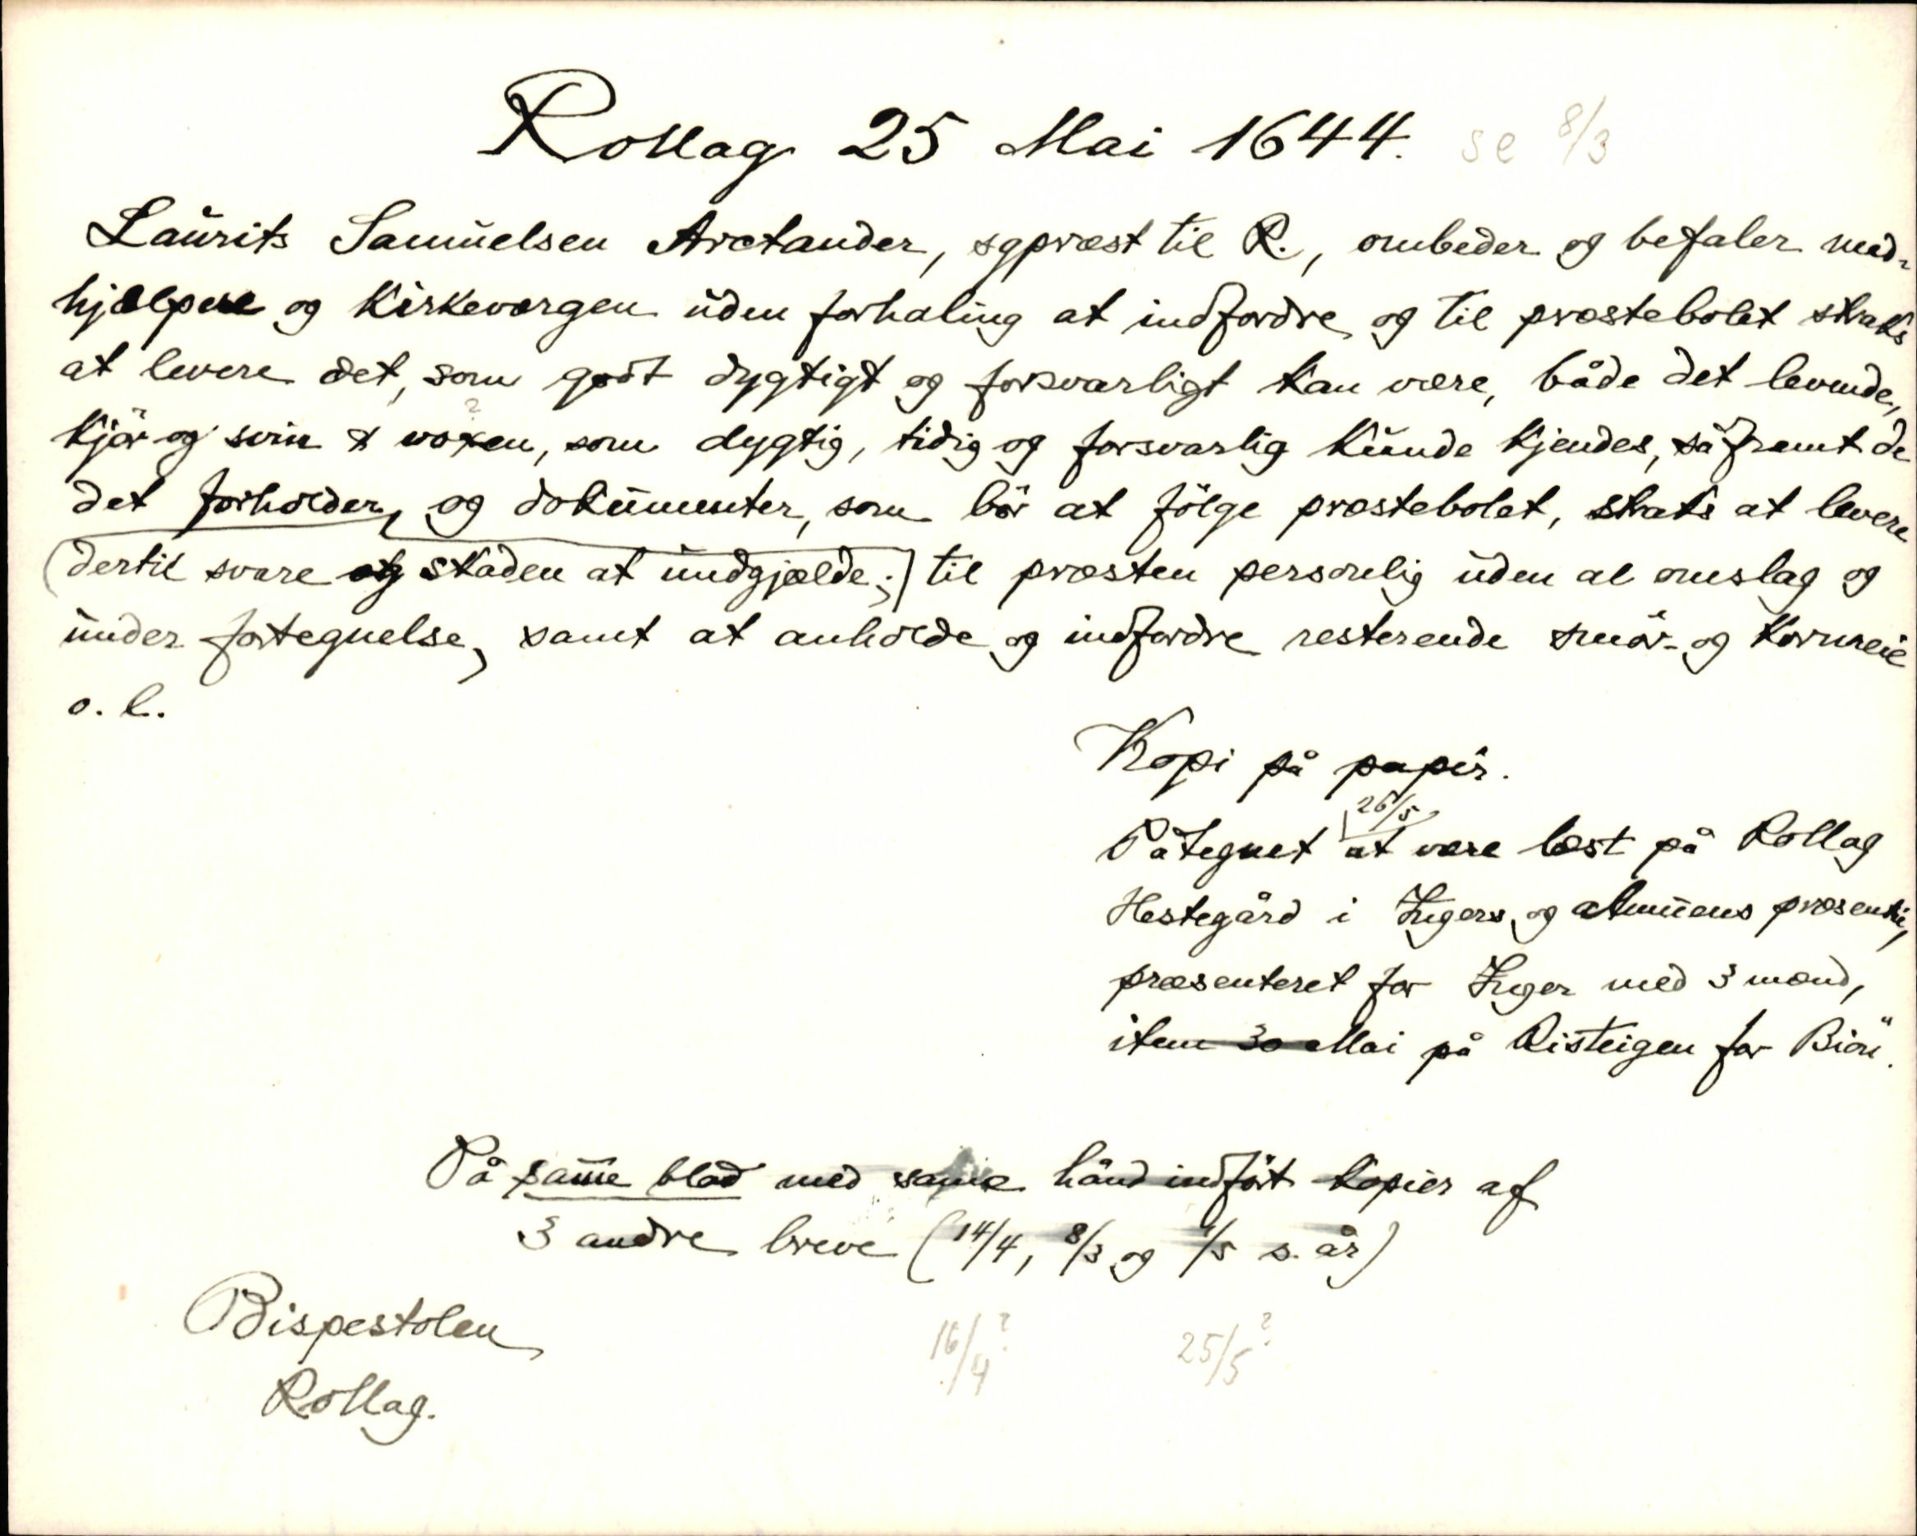 Rollag 25 Mai 1644. se 8/3
Laurits Samuelsen Arctander, sgpræst til R., ombeder og befaler med-
hjælpere og kirkeværgen uden forhaling at indfordre og til præstebolet straks
at levere det, som godt dygtigt og forsvarligt kan være, både det levende,
kjör og svin & voxen, som dygtig, tidig og forsvarlig kunde kjendes, såfremt de
det forholder, og dokumenter, som bör at fölge præstebolet, straks at levere
(dertil svare og skaden at undgjælde;) til præsten personlig uden al omslag og
under fortegnelse, samt at anholde og indfordre resterende smör- og kornleie
o. l.
Kopi på papir.
26/5
Påtegnet at være læst på Rollag
Hestegård i Ingers og almuens præsentie,
præsenteret for Inger med 3 mænd,
item 30 Mai på Risteigen for Biön.
På samme blad med samme hånd indfört kopier af
3 andre breve (14/4, 8/3 og 1/5 s. år)
16/4? 25/5?
Bispestolen
Rollag.